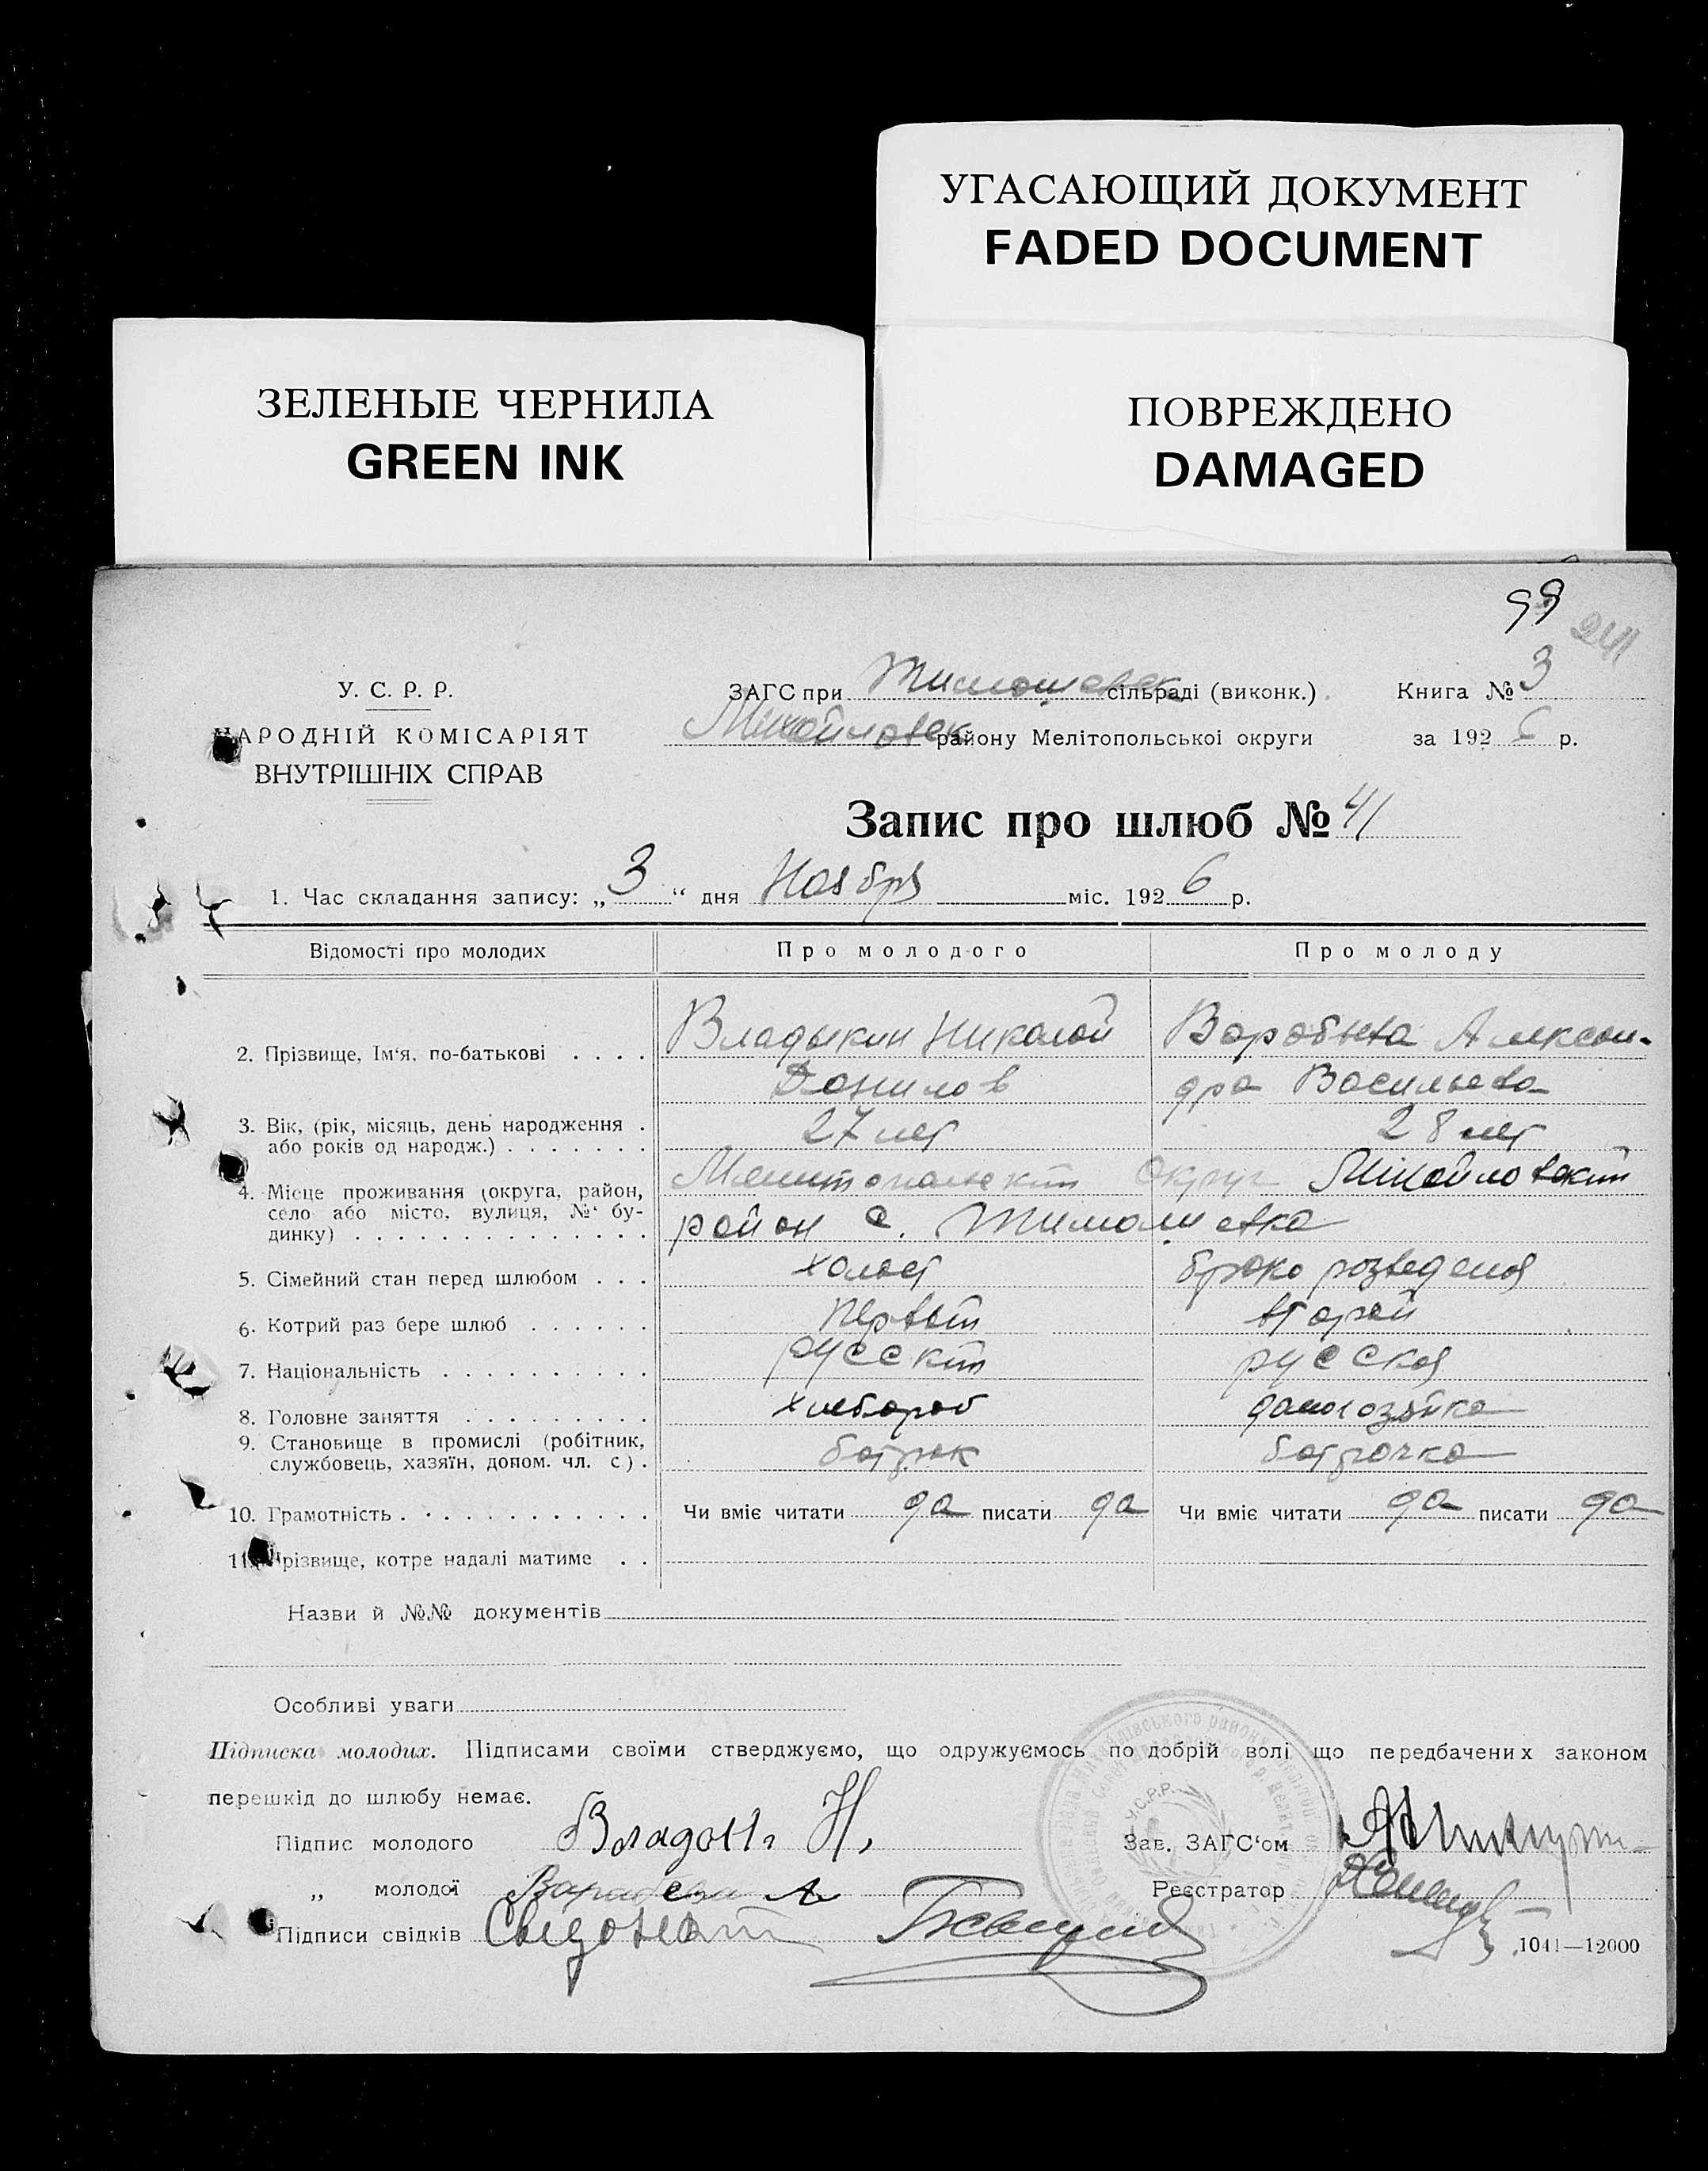 УГАСАЮЩИЙ ДОКУМЕНТ
FADED DOCUMENT
ЗЕЛЕНЫЕ ЧЕРНИЛА
GREEN INK
ПОВРЕЖДЕНО
DAMAGED
99
241
У. С. Р. Р.
НАРОДНІЙ КОМІСАРІЯТ
ВНУТРІШНІХ СПРАВ
ЗАГС при Тимошевск сільраді (виконк.) Книга № 3
Михайловск району Мелітопольськоі округи за 192 6 р.
Запис про шлюб № 41
1. Час складання запису: „ 3 “ дня Ноября міс. 192 6 р.
Відомості про молодих Про молодого Про молоду
2. Прізвище, Ім'я, по-батькові . . . . Владыкин Николай Воробьева Алексан-
Данилов дра Васильева
3. Вік, (рік, місяць, день народження . 27 лет 28 лет
або років од народж.) . . . . . . .
4. Місце проживання (округа, район, Мелитопольский Округ Михайловский
село або місто, вулиця, №' бу-
динку) . . . . . . . . . . . . . . район с. Тимошевка
5. Сімейний стан перед шлюбом . . . холост брако розведеная
6. Котрий раз бере шлюб . . . . . . первый второй
7. Національність . . . . . . . . . . русский русская
8. Головне заняття . . . . . . . . . хлебороб домохозяйка
9. Становище в промислі (робітник,
службовець, хазяїн, допом. чл. с.) . батрак батрачка
10. Грамотність . . . . . . . . . . . . Чи вміє читати да писати да Чи вміє читати да писати да
11. Прізвище, котре надалі матиме . .
Назви й №№ документів
Особливі уваги
Підписка молодих. Підписами своїми стверджуємо, що одружуємось по добрій волі що передбачених законом
перешкід до шлюбу немає.
Підпис молодого Н. Зав. ЗАГС'ом
„ молодої А Реєстратор
Підписи свідків
У.С.Р.Р.
1041—12000